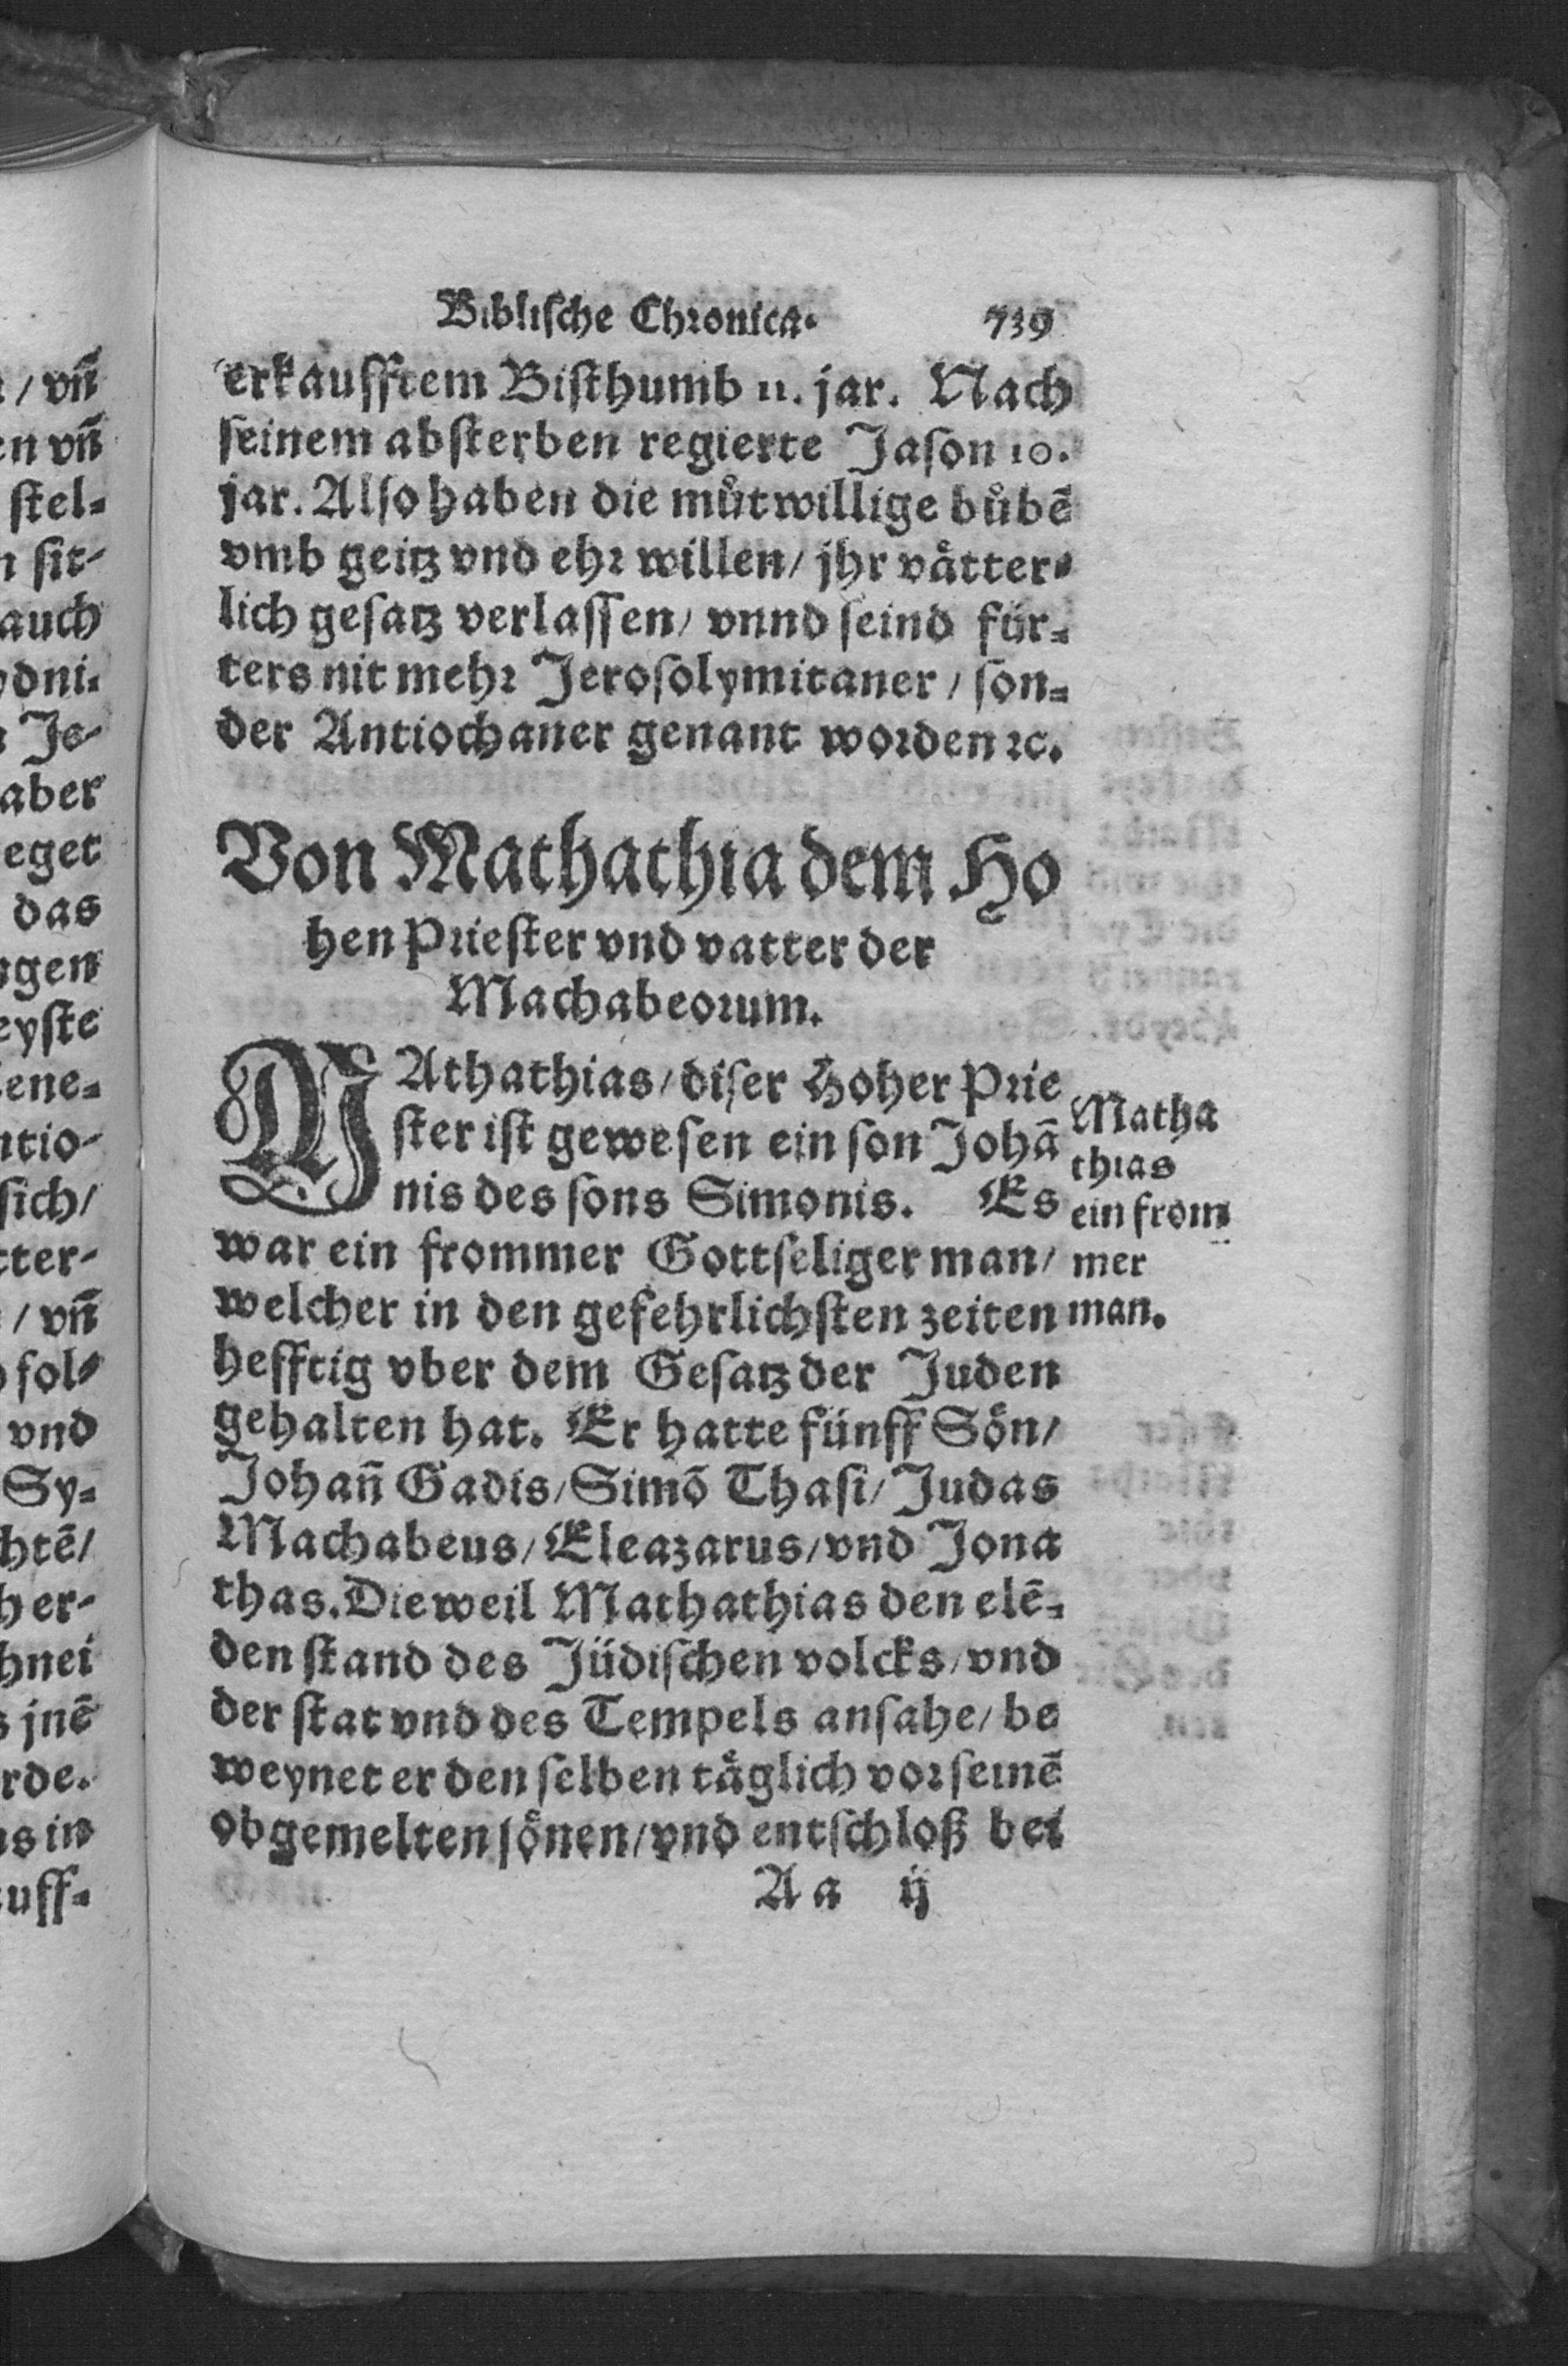 Biblische Chronica. 739
erkaufftem Bisthumb 11. jar. Nach
seinem absterben regierte Jason 10.
jar. Also haben die můtwillige bůbē
vmb geitz vnd ehr willen / jhr våtter-
lich gesatz verlassen / vnnd seind für-
ters nit mehr Jerosolymitaner / son-
der Antiochaner genant worden ꝛc.
Von Mathathia dem Ho
hen Priester vnd vatter der
Machabeorum.
MAthathias / diser Hoher Prie
ster ist gewesen ein son Johā
nis des sons Simonis. Es
war ein frommer Gottseliger man /
welcher in den gefehrlichsten zeiten
hefftig vber dem Gesatz der Juden
gehalten hat. Er hatte fünff Sön /
Johan̄ Gadis / Simō Thasi / Judas
Machabeus / Eleazarus / vnd Jona
thas. Dieweil Mathathias den elē-
den stand des Jüdischen volcks / vnd
der stat vnd des Tempels ansahe / be
weynet er den selben täglich vor seinē
obgemelten sönen / vnd entschloß bei
Aa ij
Matha
thias
ein from
mer
man.
/ vn̄
en vn̄
stel-
sit-
auch
dni-
Je-
aber
eget
das
gen
eyste
ene-
ntio-
sich /
tter-
/ vn̄
fol-
vnd
Sy-
htē /
h er-
hnei
s jnē
rde.
s in
uff-